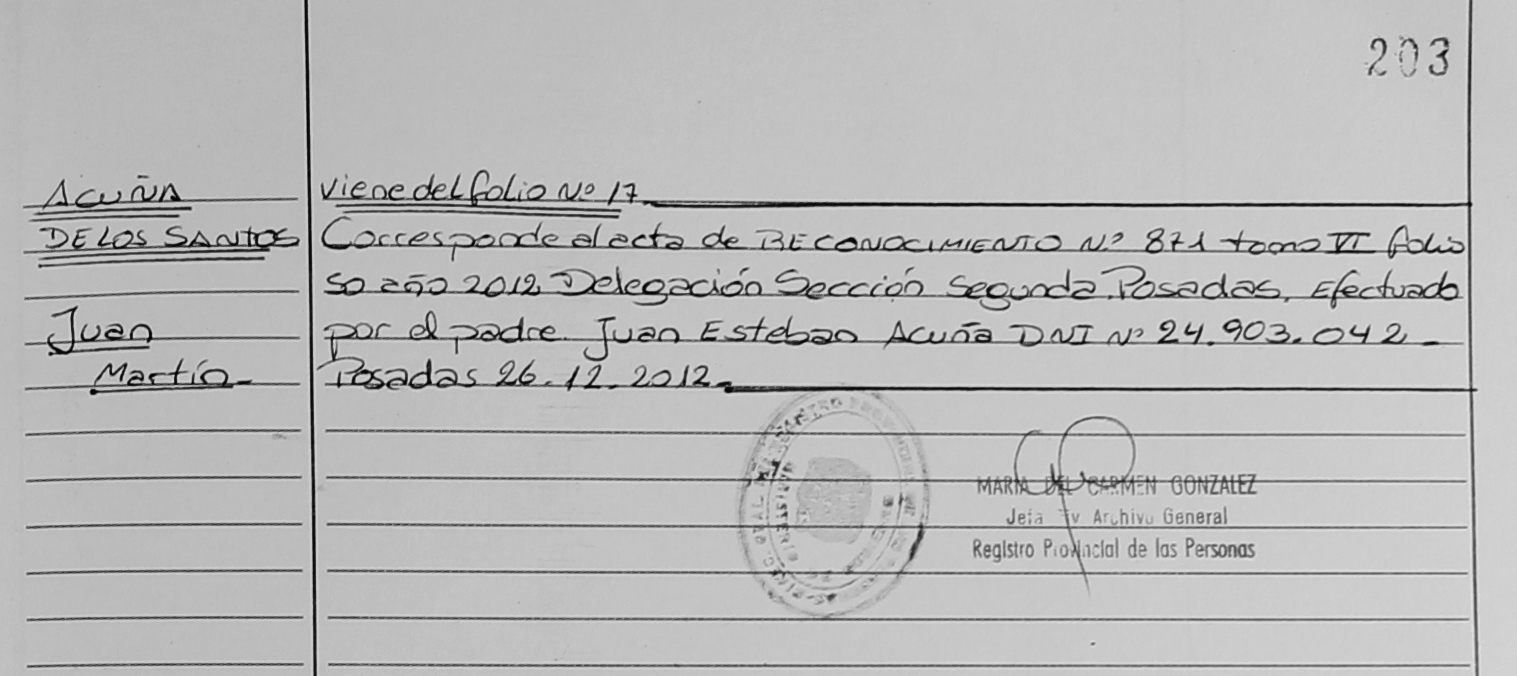 203
ACUÑA
DE LOS SANTOS
Juan
Martín
viene del folio Nº 17
Corresponde al acta de RECONOCIMIENTO Nº 871 tomo VI folio
50 año 2012 Delegación Sección Segunda. Posadas. Efectuado
por el padre. Juan Esteban Acuña DNI Nº 24.903.042 -
Posadas 26.12.2012.
MARIA DEL CARMEN GONZALEZ
Jefa Archivo General
Registro Provincial de las Personas